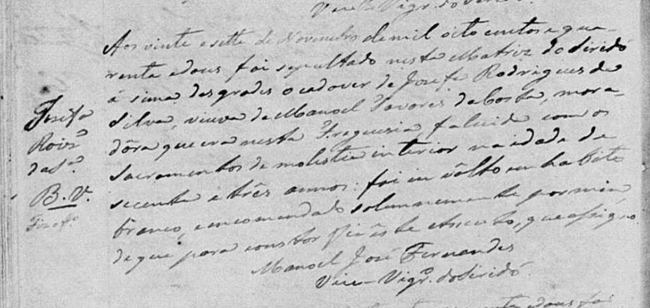 Vice Vigr.º do Seridó.
Aos vinte e sette de Novembro de mil oito centos e qua-
renta e dous foi sepultado nesta Matriz do Seridó
á sima das grades o cadover de Josefa Rodrigues da
Silva, viuva de Manoel Tavares da Costa, mora-
dôra que era nesta Freguesia falicida com os
Sacramentos de molestia interior na edade de
secenta e três annos: foi involto em habito
branco, encomendado solemnemente por mim
de que para constar fiz este Assento, que assigno.
Manoel José Fernandes
Vice-Vigr.º do Seridó.
Josefa
Roiz.ª
da S.ª
B. V.
dous foi